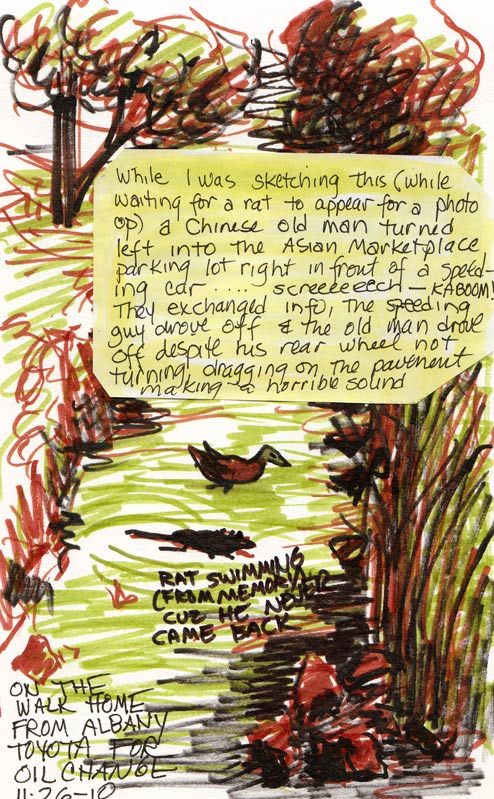 While I was sketching this (while
waiting for a rat to appear for a photo
op) a Chinese old man turned
left into the Asian Marketplace
parking lot right in front of a speed-
ing car .... screeeeeech - KABOOM!
They exchanged info, the speeding
guy drove off & the old man drove
off despite his rear wheel not
turning, dragging on the pavement
making a horrible sound
RAT SWIMMING
(FROM MEMORY)
CUZ HE NEVER
CAME BACK
ON THE
WALK HOME
FROM ALBANY
TOYOTA FOR
OIL CHANGE
11-26-10